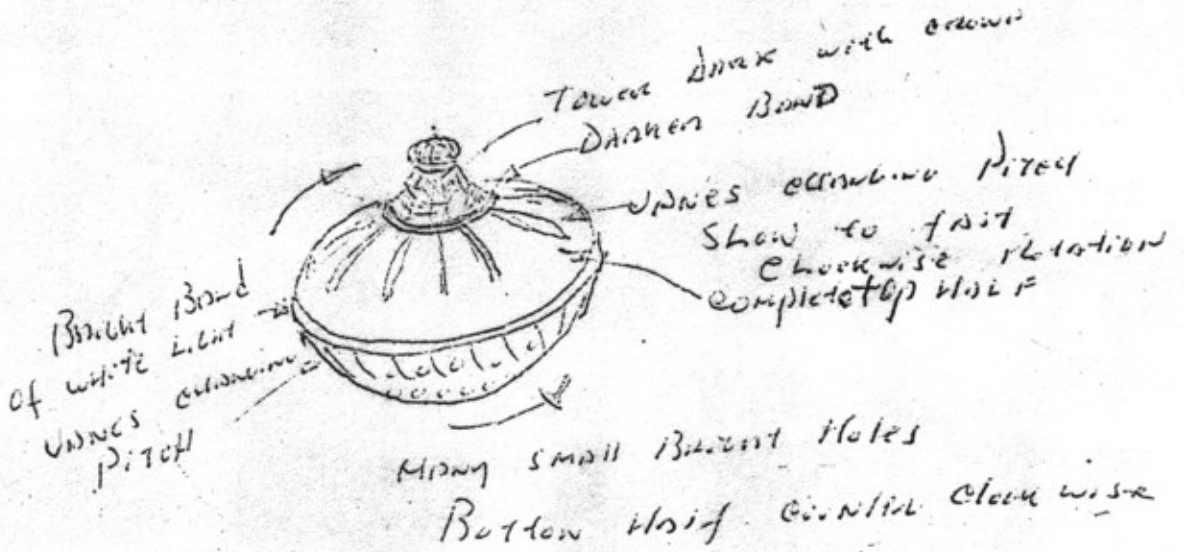 Tower DARK with crown
DARKER BAND
VANES CHANGING PITCH
Slow to fast
Clockwise Rotation
Complete top HALF
BRIGHT BAND
of white Light
VANES CHANGING
PITCH
MANY SMALL BRIGHT Holes
Bottom Half counter Clockwise